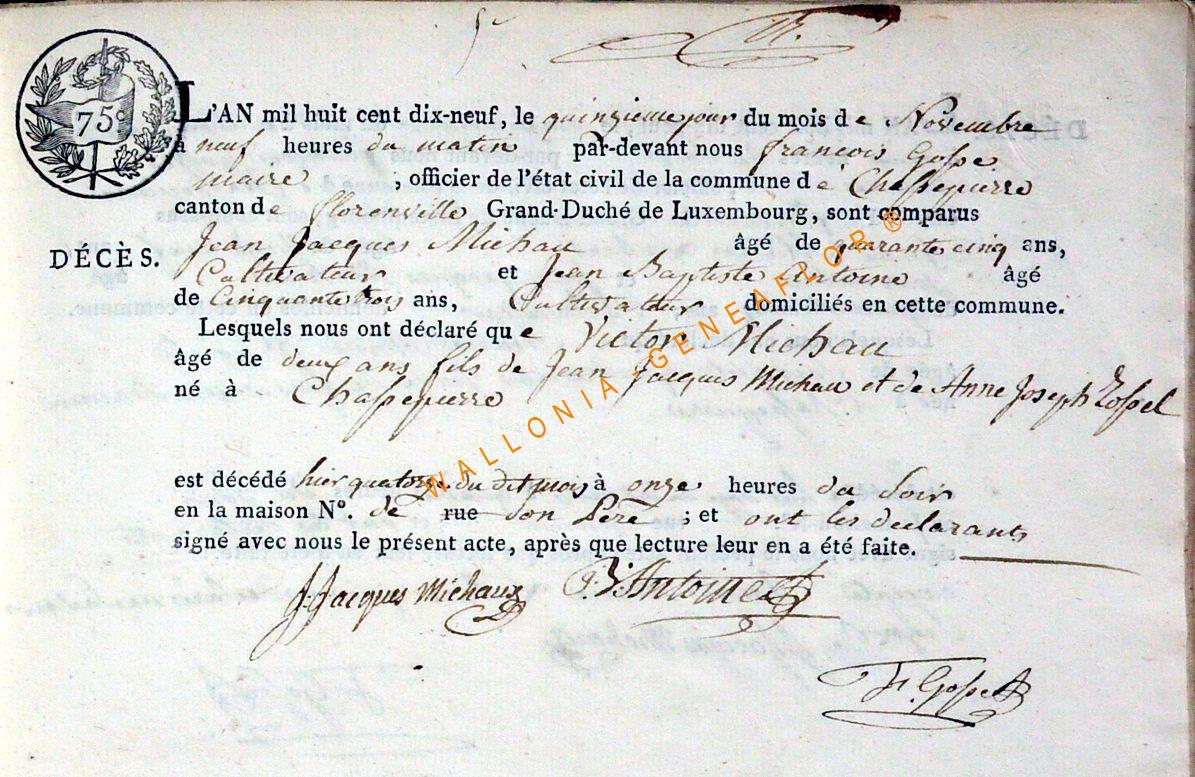 75 c
L'AN mil huit cent dix-neuf, le quinzieme jour du mois de Novembre
à neuf heures du matin par-devant nous francois Gosse
maire , officier de l'état civil de la commune de Chassepierre
canton de florenville Grand-Duché de Luxembourg, sont comparus
DÉCÈS.
Jean Jacques Michau âgé de quarante cinq ans,
Cultivateur et Jean Baptiste Antoine âgé
de Cinquante trois ans, Cultivateur domiciliés en cette commune.
Lesquels nous ont déclaré que Victor Michau
âgé de deux ans fils de Jean Jacques Michau et de Anne Joseph
né à Chassepierre
est décédé hier quatorze du dit mois à onze heures du Soir
en la maison N°. de rue Son Pere ; et ont les declarants
signé avec nous le présent acte, après que lecture leur en a été faite.
J. Jacques Michaux J. B. Antoine
F. Gosse
WALLONIA-GENEAFLOR ®